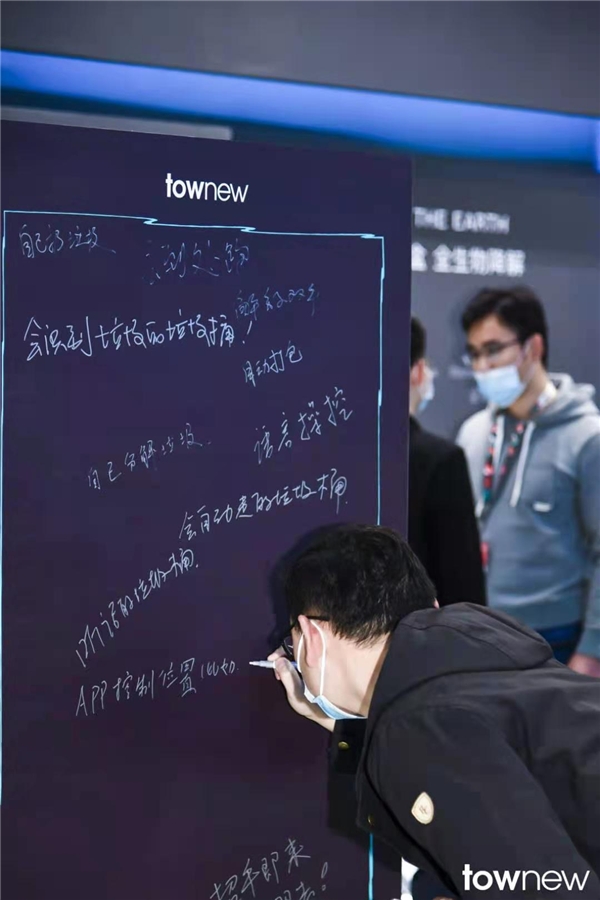 townew
THE EARTH
盒 全生物降解
自己扔垃圾
会识别垃圾的垃圾桶!
自动打包
语音操控
自己分解垃圾
会自动走的垃圾桶
听话的垃圾桶
APP控制位置
招手即来
townew